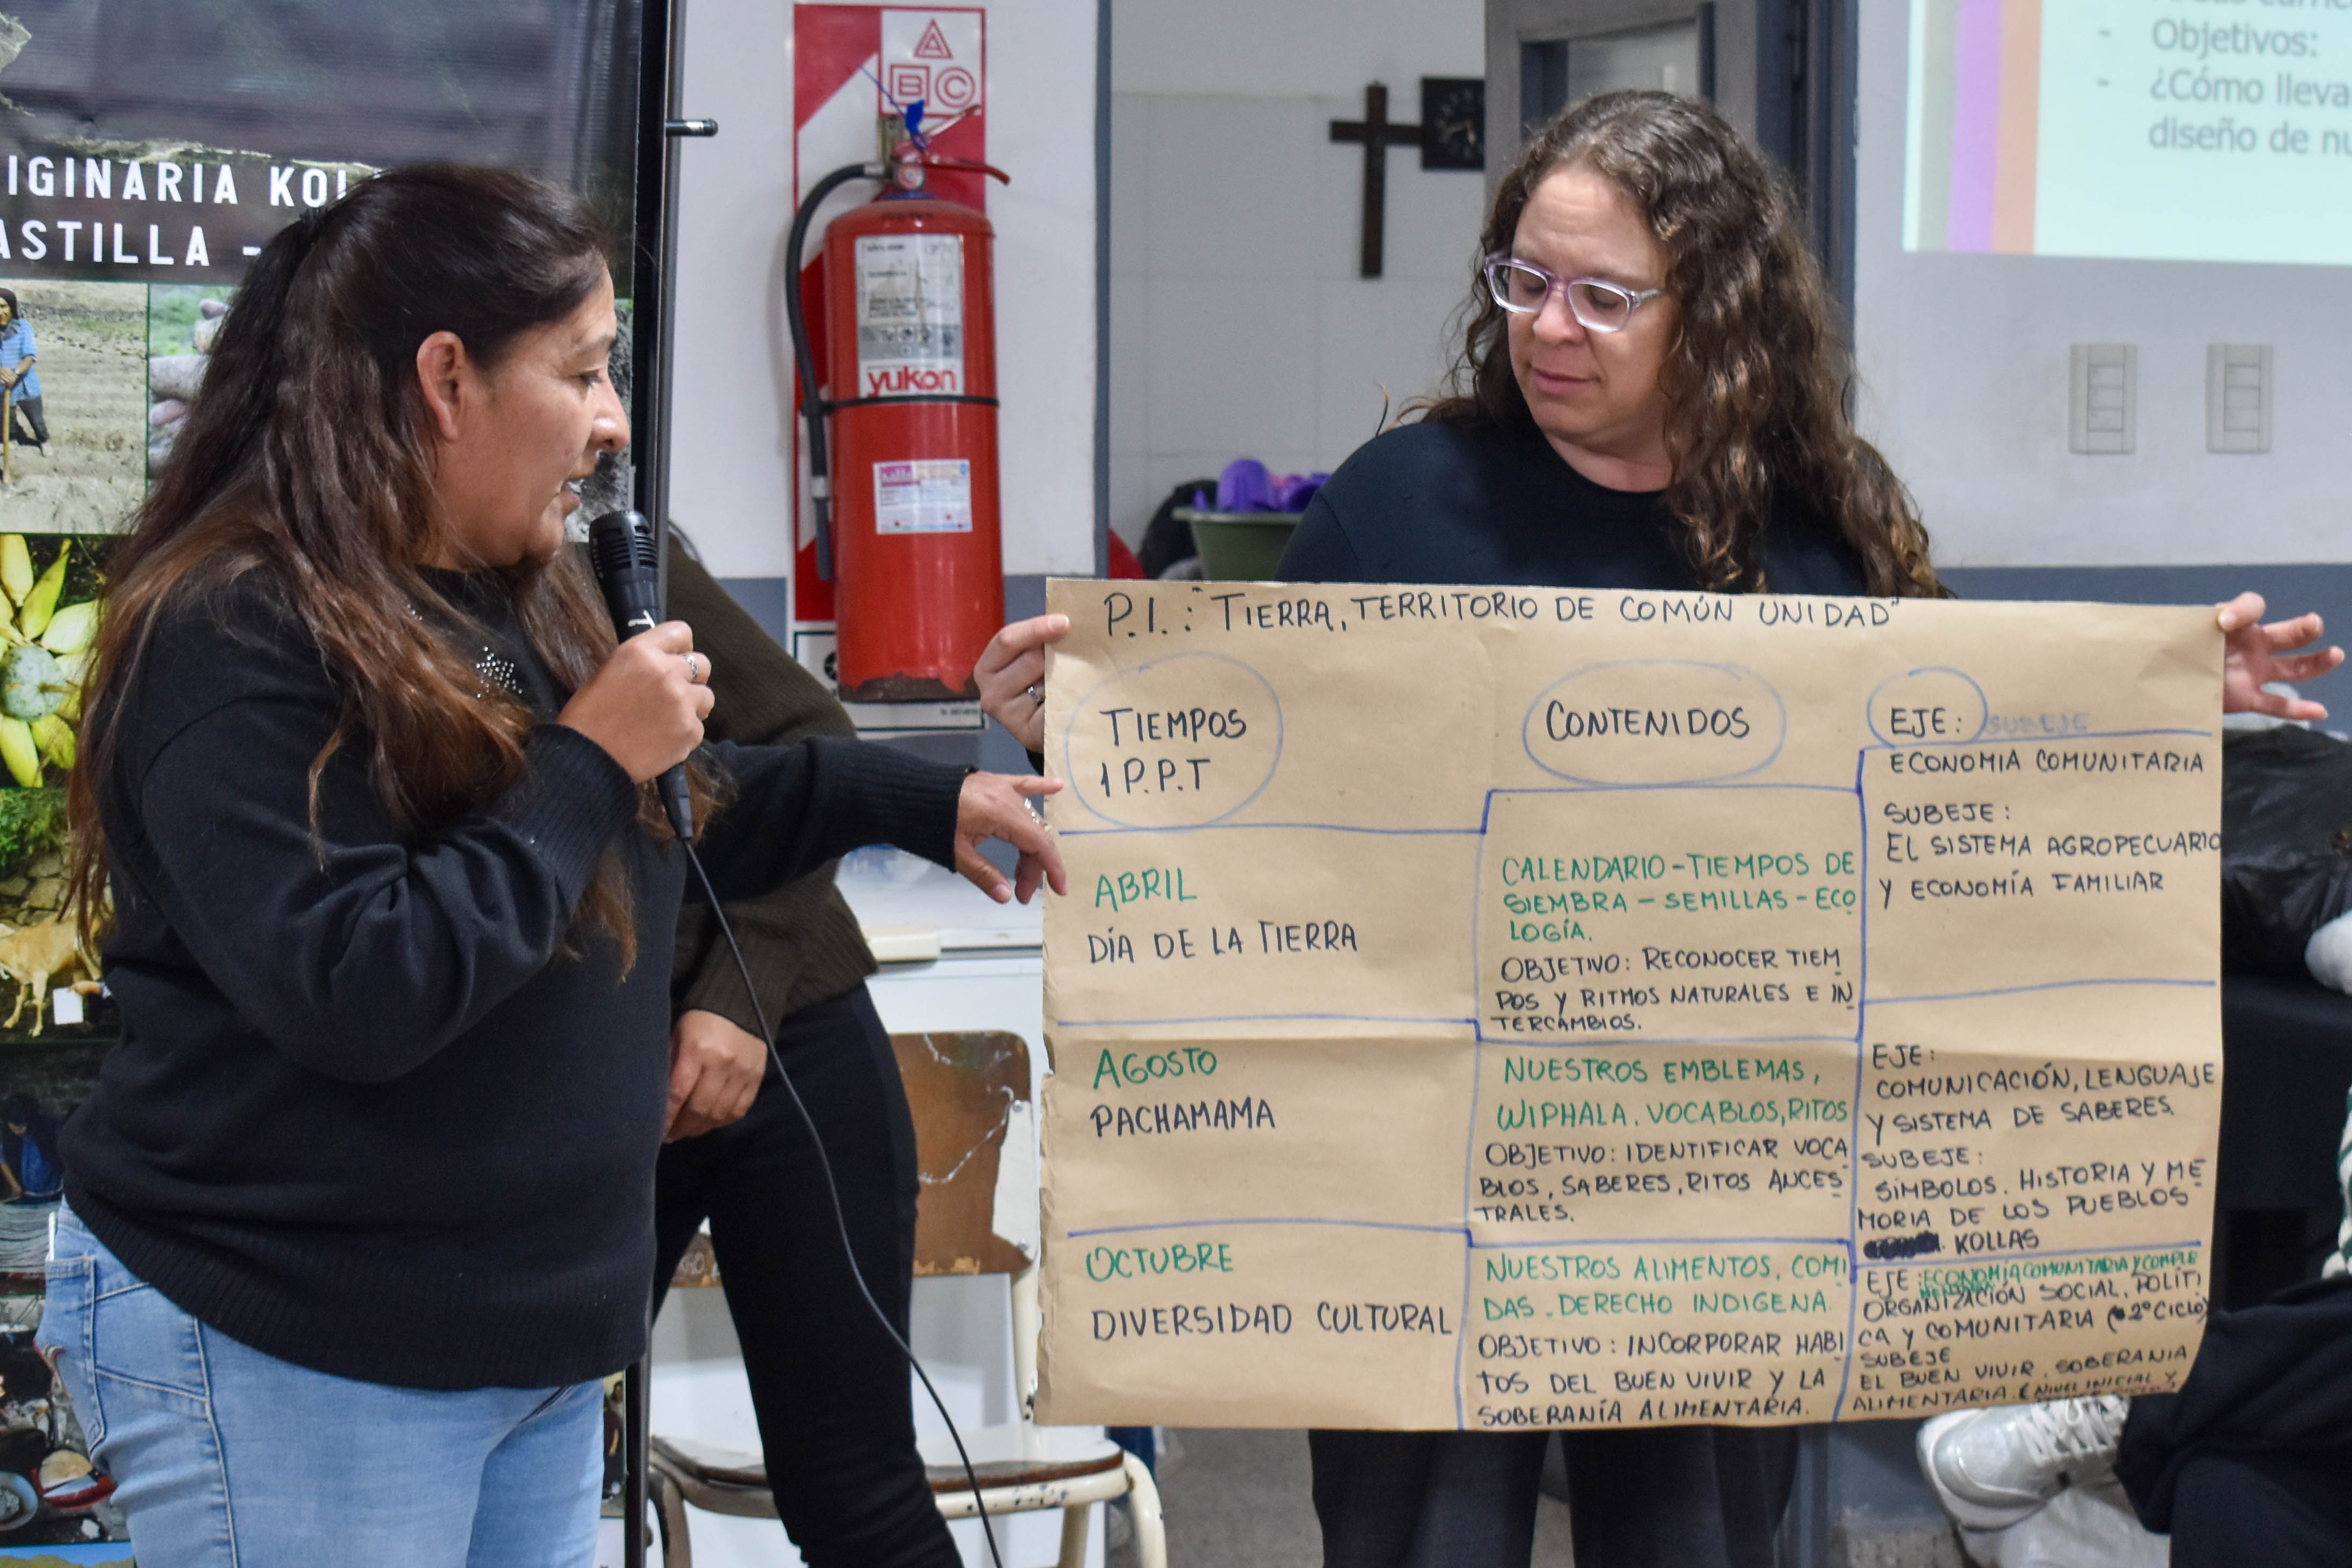 IGINARIA KOL
ASTILLA -
A
B C
yukon
- Objetivos:
- ¿Cómo lleva
diseño de nu
P.I.: "TIERRA, TERRITORIO DE COMÚN UNIDAD"
TIEMPOS
1 P.P.T
CONTENIDOS
EJE: SUBEJE
ECONOMIA COMUNITARIA
SUBEJE:
EL SISTEMA AGROPECUARIO
Y ECONOMÍA FAMILIAR
ABRIL
DÍA DE LA TIERRA
CALENDARIO - TIEMPOS DE
SIEMBRA - SEMILLAS - ECO
LOGÍA.
OBJETIVO: RECONOCER TIEM
POS Y RITMOS NATURALES E IN
TERCAMBIOS.
AGOSTO
PACHAMAMA
NUESTROS EMBLEMAS,
WIPHALA. VOCABLOS, RITOS
OBJETIVO: IDENTIFICAR VOCA
BLOS, SABERES, RITOS ANCES
TRALES.
EJE:
COMUNICACIÓN, LENGUAJE
Y SISTEMA DE SABERES.
SUBEJE:
SÍMBOLOS. HISTORIA Y ME
MORIA DE LOS PUEBLOS
KOLLAS
OCTUBRE
DIVERSIDAD CULTURAL
NUESTROS ALIMENTOS, COMI
DAS. DERECHO INDIGENA.
OBJETIVO: INCORPORAR HABI
TOS DEL BUEN VIVIR Y LA
SOBERANÍA ALIMENTARIA.
EJE: ECONOMÍA COMUNITARIA Y COMPLE
ORGANIZACIÓN SOCIAL, POLÍTI
CA Y COMUNITARIA (2º CICLO)
SUBEJE
EL BUEN VIVIR. SOBERANIA
ALIMENTARIA. (NIVEL INICIAL Y